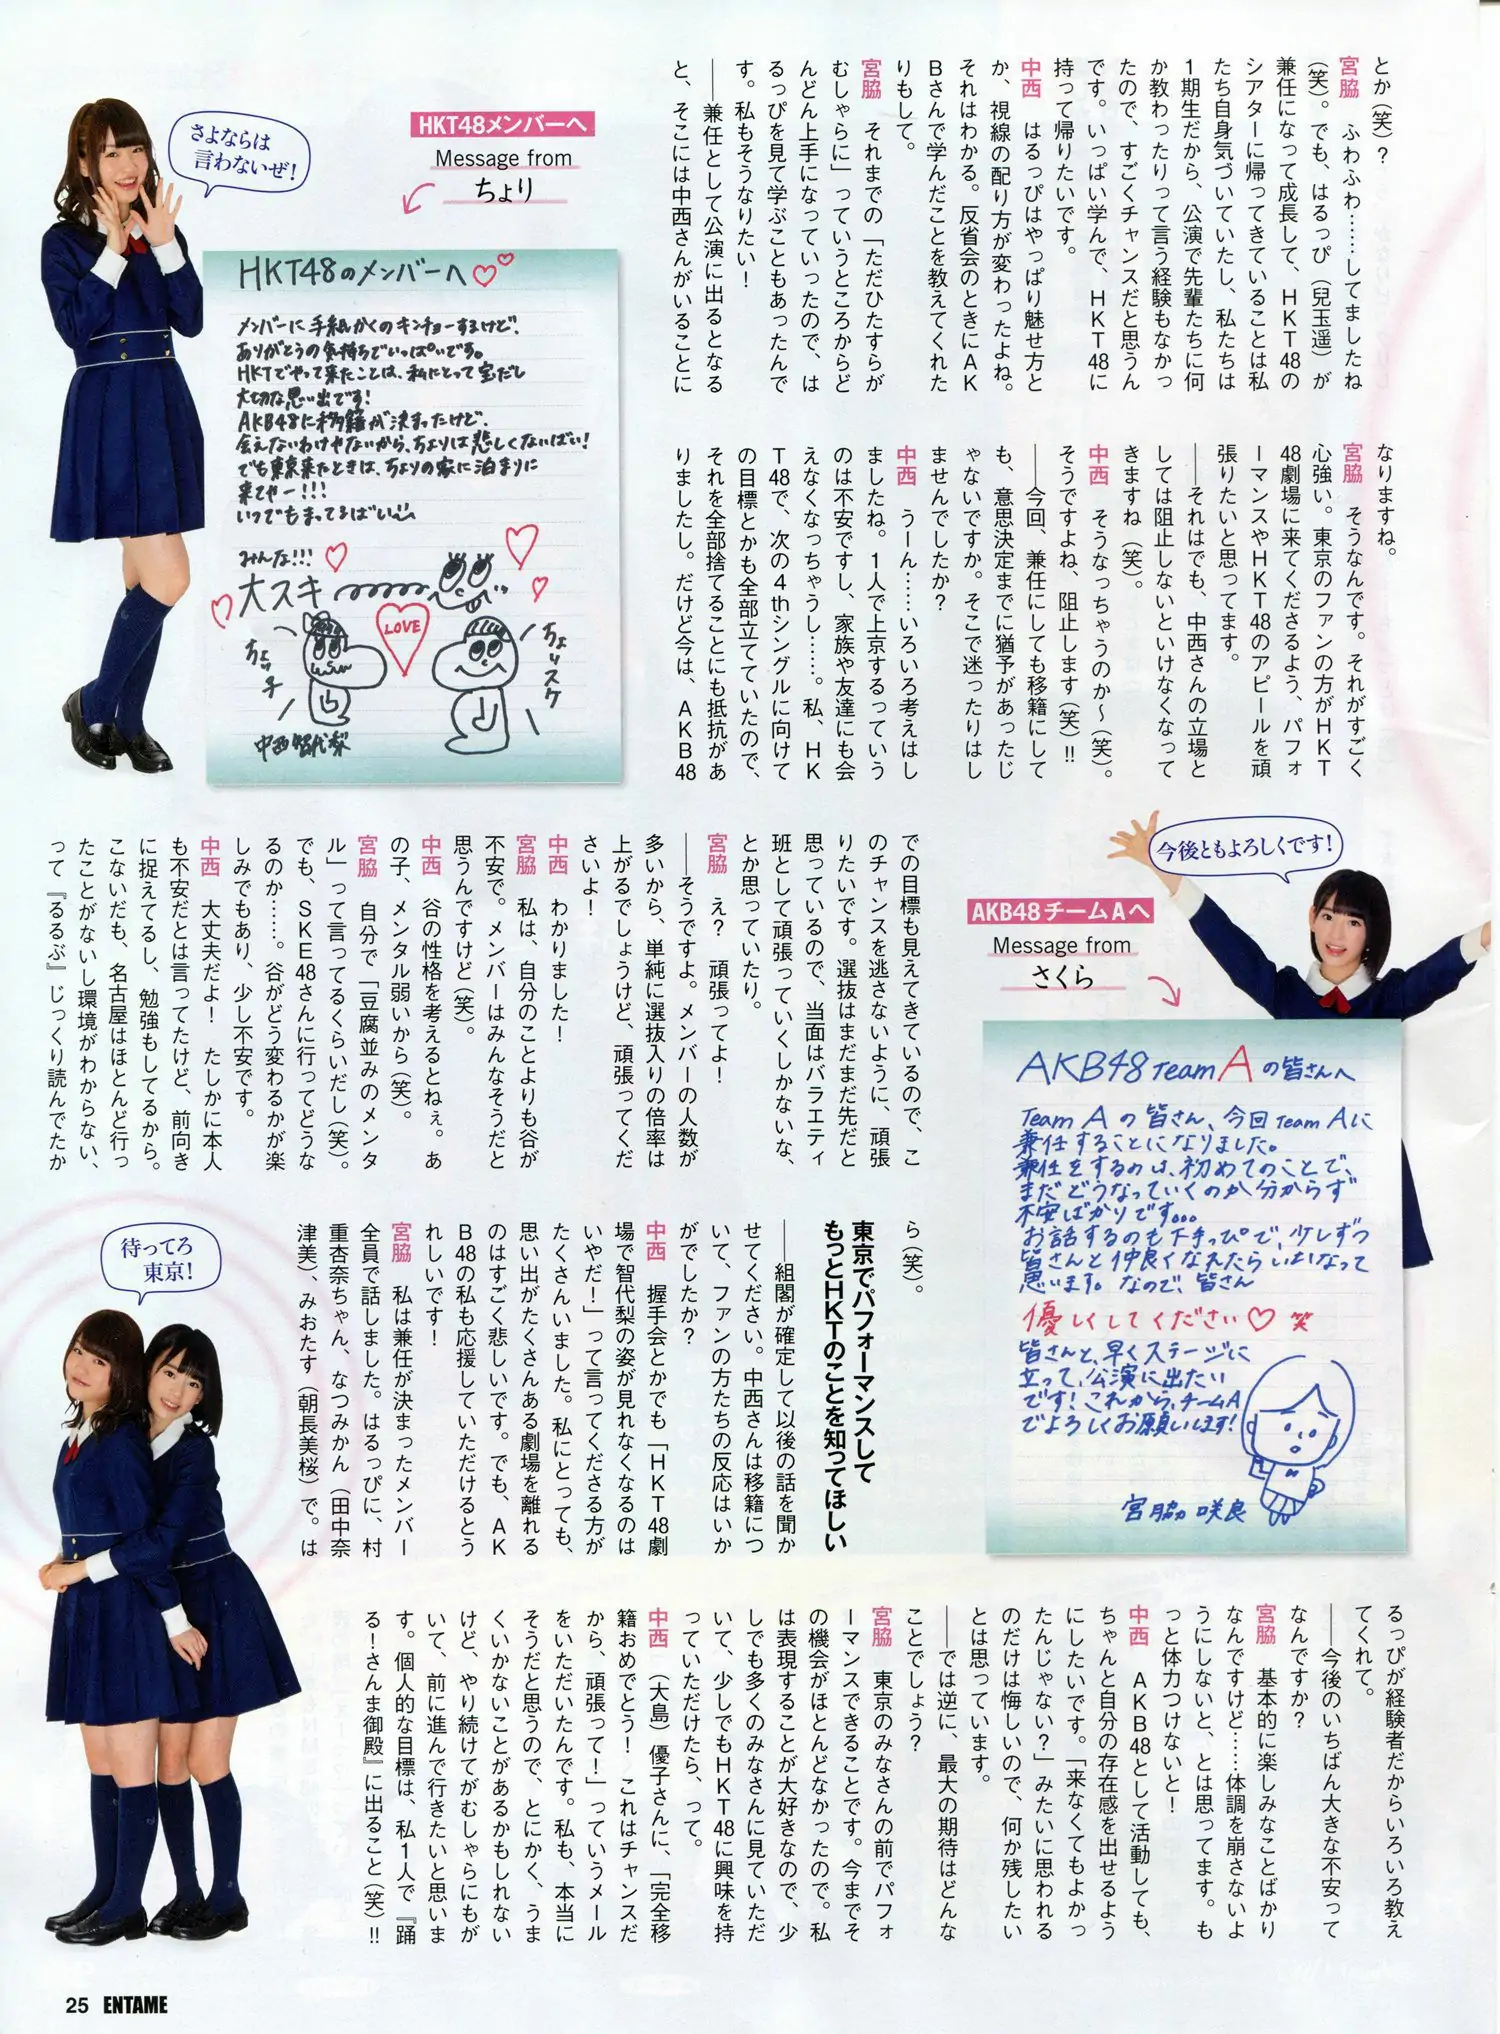 とか（笑）？
宮脇　ふわふわ……してましたね
（笑）。でも、はるっぴ（兒玉遥）が
兼任になって成長して、HKT48の
シアターに帰ってきていることは私
たち自身気づいていたし、私たちは
1期生だから、公演で先輩たちに何
か教わったりって言う経験もなかっ
たので、すごくチャンスだと思うん
です。いっぱい学んで、HKT48に
持って帰りたいです。
中西　はるっぴはやっぱり魅せ方と
か、視線の配り方が変わったよね。
それはわかる。反省会のときにAK
Bさんで学んだことを教えてくれた
りもして。
宮脇　それまでの「ただひたすらが
むしゃらに」っていうところからど
んどん上手になっていったので、は
るっぴを見て学ぶこともあったんで
す。私もそうなりたい！
――兼任として公演に出るとなる
と、そこには中西さんがいることに
HKT48メンバーへ
Message from
ちょり
さよならは
言わないぜ！
HKT48のメンバーへ♡♡
メンバーに手紙かくのキンチョーするけど、
ありがとうの気持ちでいっぱいです。
HKTでやって来たことは、私にとって宝だし
大切な思い出です！
AKB48に移籍が決まったけど、
会えないわけやないから、ちょりは悲しくないばい！
でも東京来たときは、ちょりの家に泊まりに
来てやー!!!
いつでもまってるばい
みんな!!!
大スキ
LOVE
ちょっ子
ちょりスケ
中西智代梨
なりますね。
宮脇　そうなんです。それがすごく
心強い。東京のファンの方がHKT
48劇場に来てくださるよう、パフォ
ーマンスやHKT48のアピールを頑
張りたいと思ってます。
――それはでも、中西さんの立場と
しては阻止しないといけなくなって
きますね（笑）。
中西　そうなっちゃうのか〜（笑）。
そうですよね、阻止します（笑）!!
――今回、兼任にしても移籍にして
も、意思決定までに猶予があったじ
ゃないですか。そこで迷ったりはし
ませんでしたか？
中西　うーん……いろいろ考えはし
ましたね。1人で上京するっていう
のは不安ですし、家族や友達にも会
えなくなっちゃうし……。私、HK
T48で、次の4thシングルに向けて
の目標とかも全部立てていたので、
それを全部捨てることにも抵抗があ
りましたし。だけど今は、AKB48
での目標も見えてきているので、こ
のチャンスを逃さないように、頑張
りたいです。選抜はまだまだ先だと
思っているので、当面はバラエティ
班として頑張っていくしかないな、
とか思っていたり。
宮脇　え？　頑張ってよ！
――そうですよ。メンバーの人数が
多いから、単純に選抜入りの倍率は
上がるでしょうけど、頑張ってくだ
さいよ！
中西　わかりました！
宮脇　私は、自分のことよりも谷が
不安で。メンバーはみんなそうだと
思うんですけど（笑）。
中西　谷の性格を考えるとねぇ。あ
の子、メンタル弱いから（笑）。
宮脇　自分で「豆腐並みのメンタ
ル」って言ってるくらいだし（笑）。
でも、SKE48さんに行ってどうな
るのか……。谷がどう変わるかが楽
しみでもあり、少し不安です。
中西　大丈夫だよ！　たしかに本人
も不安だとは言ってたけど、前向き
に捉えてるし、勉強もしてるから。
こないだも、名古屋はほとんど行っ
たことがないし環境がわからない、
って『るるぶ』じっくり読んでたか
今後ともよろしくです！
AKB48チームAへ
Message from
さくら
AKB48 Team Aの皆さんへ
Team Aの皆さん、今回Team Aに
兼任することになりました。
兼任をするのは、初めてのことで、
まだどうなっていくのか分からず
不安ばかりです。。。
お話するのも下手っぴで、少しずつ
皆さんと仲良くなれたらいいなって
思います。なので、皆さん
優しくしてください♡ 笑
皆さんと、早くステージに
立って、公演に出たい
です！これから、チームA
でよろしくお願いします！
宮脇咲良
ら（笑）。
東京でパフォーマンスして
もっとHKTのことを知ってほしい
――組閣が確定して以後の話を聞か
せてください。中西さんは移籍につ
いて、ファンの方たちの反応はいか
がでしたか？
中西　握手会とかでも「HKT48劇
場で智代梨の姿が見れなくなるのは
いやだ！」って言ってくださる方が
たくさんいました。私にとっても、
思い出がたくさんある劇場を離れる
のはすごく悲しいです。でも、AK
B48の私も応援していただけるとう
れしいです！
宮脇　私は兼任が決まったメンバー
全員で話しました。はるっぴに、村
重杏奈ちゃん、なつみかん（田中菜
津美）、みおたす（朝長美桜）で。は
待ってろ
東京！
るっぴが経験者だからいろいろ教え
てくれて。
――今後のいちばん大きな不安って
なんですか？
宮脇　基本的に楽しみなことばかり
なんですけど……体調を崩さないよ
うにしないと、とは思ってます。も
っと体力つけないと！
中西　AKB48として活動しても、
ちゃんと自分の存在感を出せるよう
にしたいです。「来なくてもよかっ
たんじゃない？」みたいに思われる
のだけは悔しいので、何か残したい
とは思っています。
――では逆に、最大の期待はどんな
ことでしょう？
宮脇　東京のみなさんの前でパフォ
ーマンスできることです。今までそ
の機会がほとんどなかったので。私
は表現することが大好きなので、少
しでも多くのみなさんに見ていただ
いて、少しでもHKT48に興味を持
っていただけたら、って。
中西　（大島）優子さんに、「完全移
籍おめでとう！　これはチャンスだ
から、頑張って！」っていうメール
をいただいたんです。私も、本当に
そうだと思うので、とにかく、うま
くいかないことがあるかもしれない
けど、やり続けてがむしゃらにもが
いて、前に進んで行きたいと思いま
す。個人的な目標は、私1人で『踊
る！さんま御殿』に出ること（笑）!!
25 ENTAME